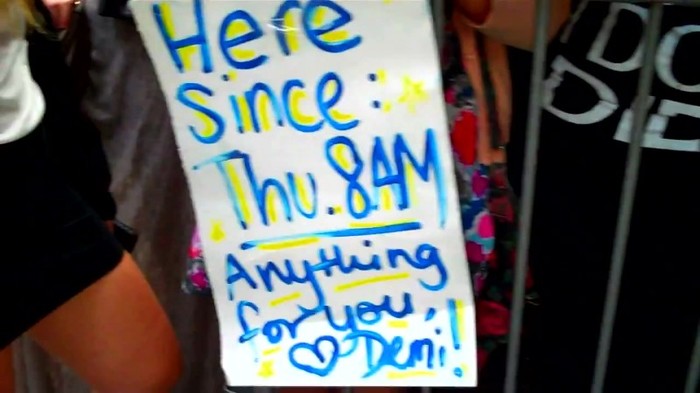 Here
Since:
Thu. 8AM
Anything
for you,
Demi!